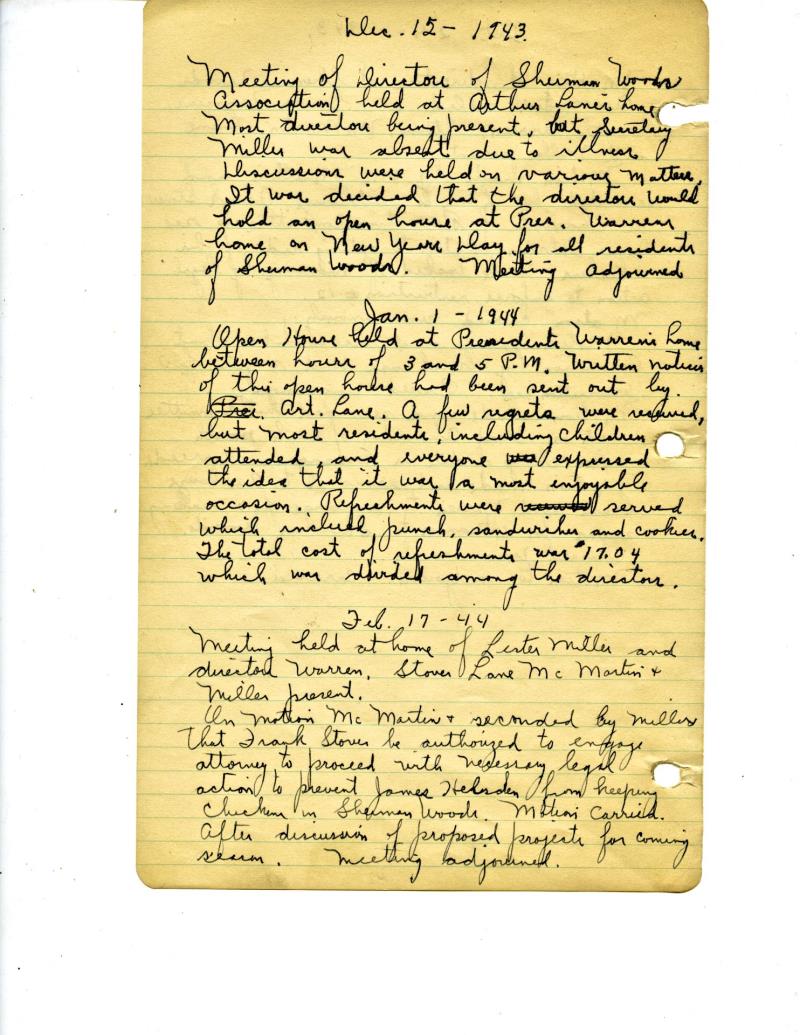 Dec. 15 - 1943.
Meeting of Directors of Sherman Woods
Association held at Arthur Lane's home.
Most directors being present, but Secretary
Miller was absent due to illness
Discussions were held on various matters.
It was decided that the directors would
hold an open house at Pres. Warrens
home on New Years Day for all residents
of Sherman Woods. Meeting adjourned
Jan. 1 - 1944
Open House held at Presidents Warren's home
between hours of 3 and 5 P.M. Written notices
of this open house had been sent out by
Pres. Art. Lane. A few regrets were received,
but most residents, including children
attended, and everyone was expressed
the idea that it was a most enjoyable
occasion. Refreshments were served
which includ punch, sandwiches and cookies.
The total cost of refreshments was $17.04
which was divided among the directors.
Feb. 17 - 44
Meeting held at home of Lester Miller and
directors Warren, Stover Lane McMartin +
Miller present.
On motion McMartin + seconded by Miller
that Frank Stover be authorized to engage
attorney to proceed with necessary legal
action to prevent James from keeping
chickens in Sherman Woods. Motion carried.
After discussion of proposed projects for coming
season. Meeting adjourned.